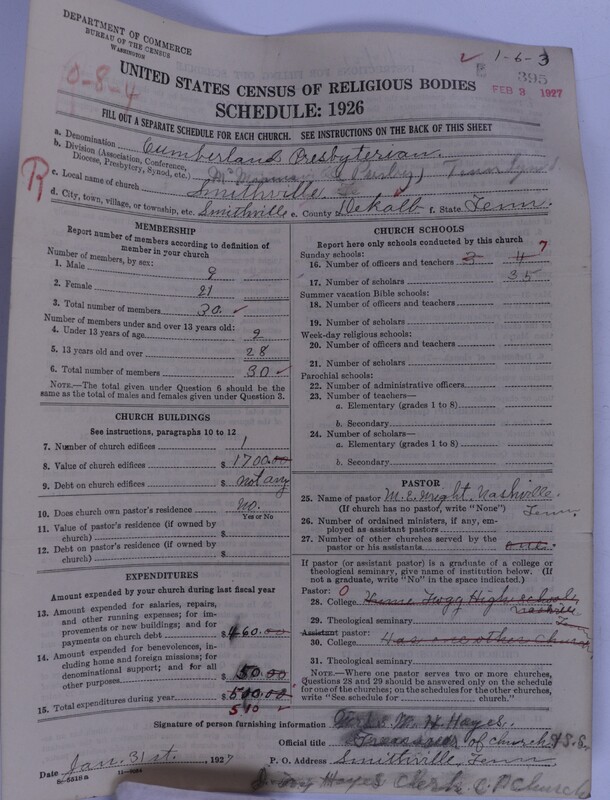 DEPARTMENT OF COMMERCE
BUREAU OF THE CENSUS
WASHINGTON
0-8-4
1-6-3
395
FEB 3 1927
UNITED STATES CENSUS OF RELIGIOUS BODIES
SCHEDULE: 1926
FILL OUT A SEPARATE SCHEDULE FOR EACH CHURCH. SEE INSTRUCTIONS ON THE BACK OF THIS SHEET
a. Denomination Cumberland Presbyterian
b. Division (Association, Conference, Diocese, Presbytery, Synod, etc.)
R
c. Local name of church Smithville
d. City, town, village, or township, etc. Smithville e. County Dekalb f. State Tenn.
MEMBERSHIP
Report number of members according to definition of member in your church
Number of members, by sex:
1. Male 9
2. Female 21
3. Total number of members 30
Number of members under and over 13 years old:
4. Under 13 years of age 2
5. 13 years old and over 28
6. Total number of members 30
NOTE.—The total given under Question 6 should be the same as the total of males and females given under Question 3.
CHURCH BUILDINGS
See instructions, paragraphs 10 to 12
7. Number of church edifices 1
8. Value of church edifices $ 1700.00
9. Debt on church edifices $ not any
10. Does church own pastor's residence? No.
Yes or No
11. Value of pastor's residence (if owned by church) $
12. Debt on pastor's residence (if owned by church) $
EXPENDITURES
Amount expended by your church during last fiscal year
13. Amount expended for salaries, repairs, and other running expenses; for improvements or new buildings; and for payments on church debt $ 460.00
14. Amount expended for benevolences, including home and foreign missions; for denominational support; and for all other purposes $ 50.00
15. Total expenditures during year $ 500.00
510
CHURCH SCHOOLS
Report here only schools conducted by this church
Sunday schools:
16. Number of officers and teachers 3 4 7
17. Number of scholars 35
Summer vacation Bible schools:
18. Number of officers and teachers
19. Number of scholars
Week-day religious schools:
20. Number of officers and teachers
21. Number of scholars
Parochial schools:
22. Number of administrative officers
23. Number of teachers—
a. Elementary (grades 1 to 8)
b. Secondary
24. Number of scholars—
a. Elementary (grades 1 to 8)
b. Secondary
PASTOR
25. Name of pastor M. E. Wright, Nashville.
(If church has no pastor, write "None") Tenn.
26. Number of ordained ministers, if any, employed as assistant pastors
27. Number of other churches served by the pastor or his assistants
If pastor (or assistant pastor) is a graduate of a college or theological seminary, give name of institution below. (If not a graduate, write "No" in the space indicated.)
Pastor: 0
28. College Hume Fogg High school, Nashville
29. Theological seminary
Assistant pastor:
30. College Has one other Church
31. Theological seminary
NOTE.—Where one pastor serves two or more churches, Questions 28 and 29 should be answered only on the schedule for one of the churches; on the schedules for the other churches, write "See schedule for church."
Signature of person furnishing information Mrs. W. H. Hayes.
Official title of church & S.S.
Date Jan. 31st., 1927 P. O. Address Smithville, Tenn
8-6518a
Hayes Clerk C. P. Church